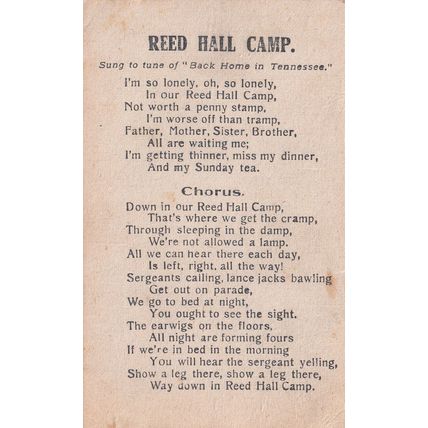 REED HALL CAMP.
Sung to tune of "Back Home in Tennessee."
I'm so lonely, oh, so lonely,
In our Reed Hall Camp,
Not worth a penny stamp,
I'm worse off than tramp,
Father, Mother, Sister, Brother,
All are waiting me;
I'm getting thinner, miss my dinner,
And my Sunday tea.
Chorus.
Down in our Reed Hall Camp,
That's where we get the cramp,
Through sleeping in the damp,
We're not allowed a lamp.
All we can hear there each day,
Is left, right, all the way!
Sergeants calling, lance jacks bawling
Get out on parade,
We go to bed at night,
You ought to see the sight.
The earwigs on the floors,
All night are forming fours
If we're in bed in the morning
You will hear the sergeant yelling,
Show a leg there, show a leg there,
Way down in Reed Hall Camp.